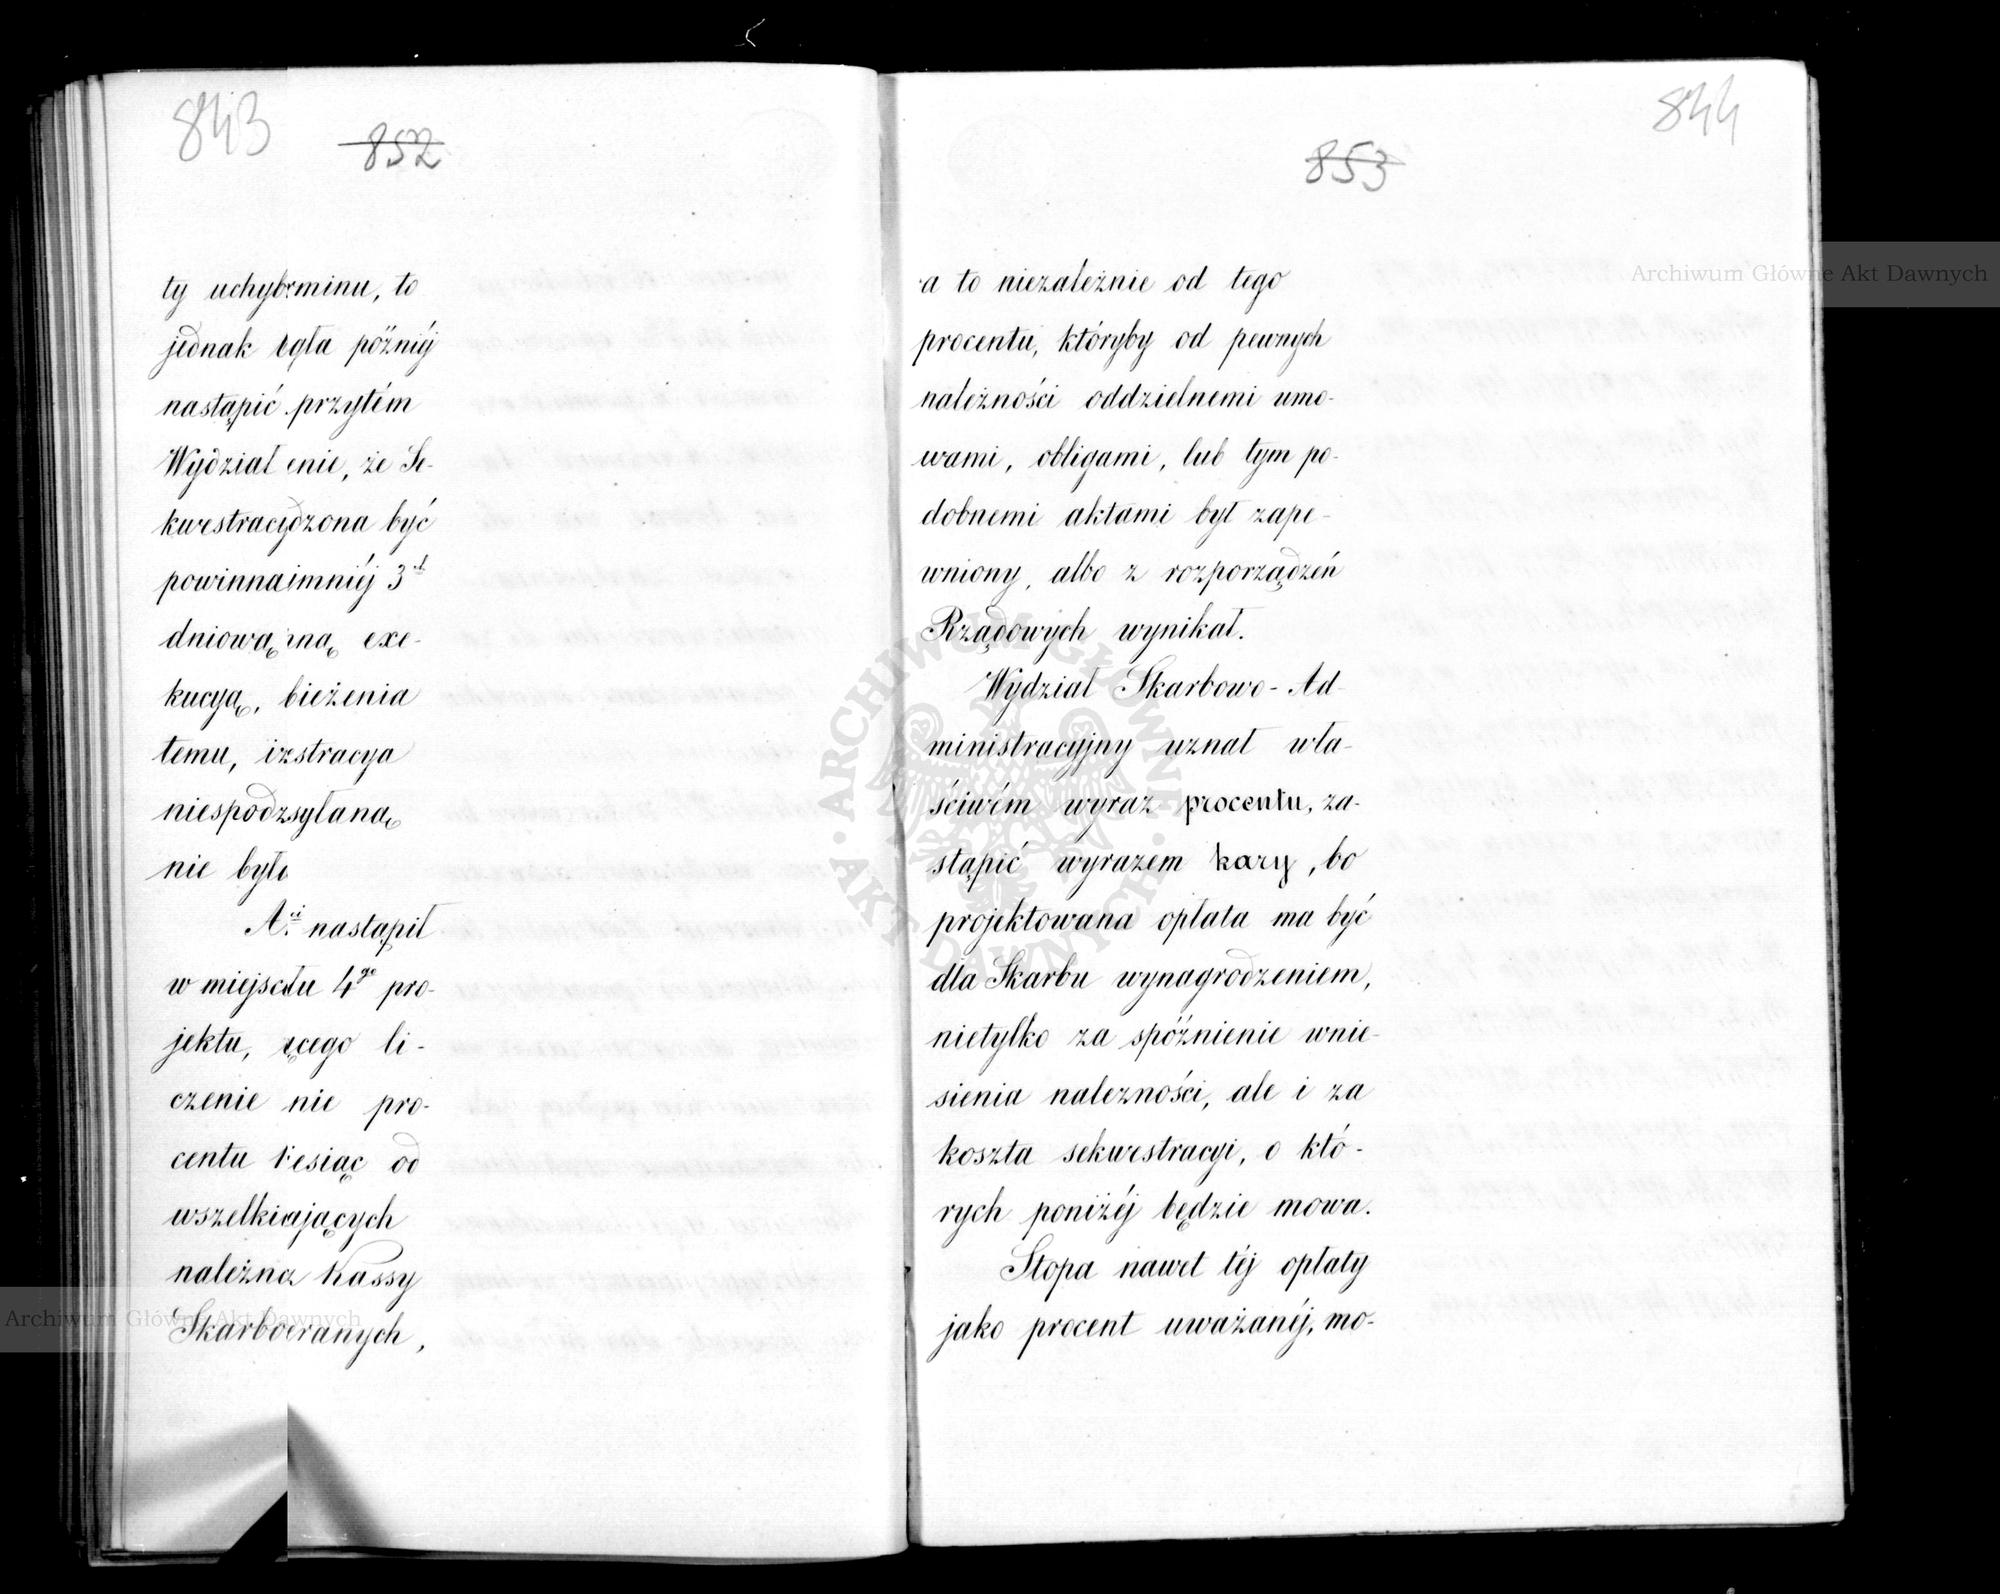 843
852
ty uchyb
rminu, to
jednak
później
nastąpić
przytém
Wydział
enie, że Se-
kwestracy
dzona być
powinna
jmniéj 3
dniową
ną exe-
kucyą,
bieżenia
temu, i
zstracya
niespodz
syłaną
nie był
nastąpił
w miejsc
tu 4go pro-
jektu,
cego li-
czenie nie pro-
centu
esiąc od
wszelki
ających
należn
Kassy
Skarbo
eranych,
844
853
a to niezależnie od tego
procentu, któryby od pewnych
należności oddzielnemi umo-
wami, obligami, lub tym po-
dobnemi aktami był zape-
wniony, albo z rozporządzeń
Rządowych wynikał.
Wydział Skarbowo-Ad-
ministracyjny uznał wła-
ściwém wyraz procentu, za-
stąpić wyrazem kary, bo
projektowana opłata ma być
dla Skarbu wynagrodzeniem,
nietylko za spóźnienie wnie-
sienia nalezności, ale i za
koszta sekwestracyi, o któ-
rych poniżéj będzie mowa.
Stopa nawet téj opłaty
jako procent uważanéj, mo-
Archiwum Główne Akt Dawnych
Archiwum Główne Akt Dawnych
ARCHIWUM GŁÓWNE AKT DAWNYCH